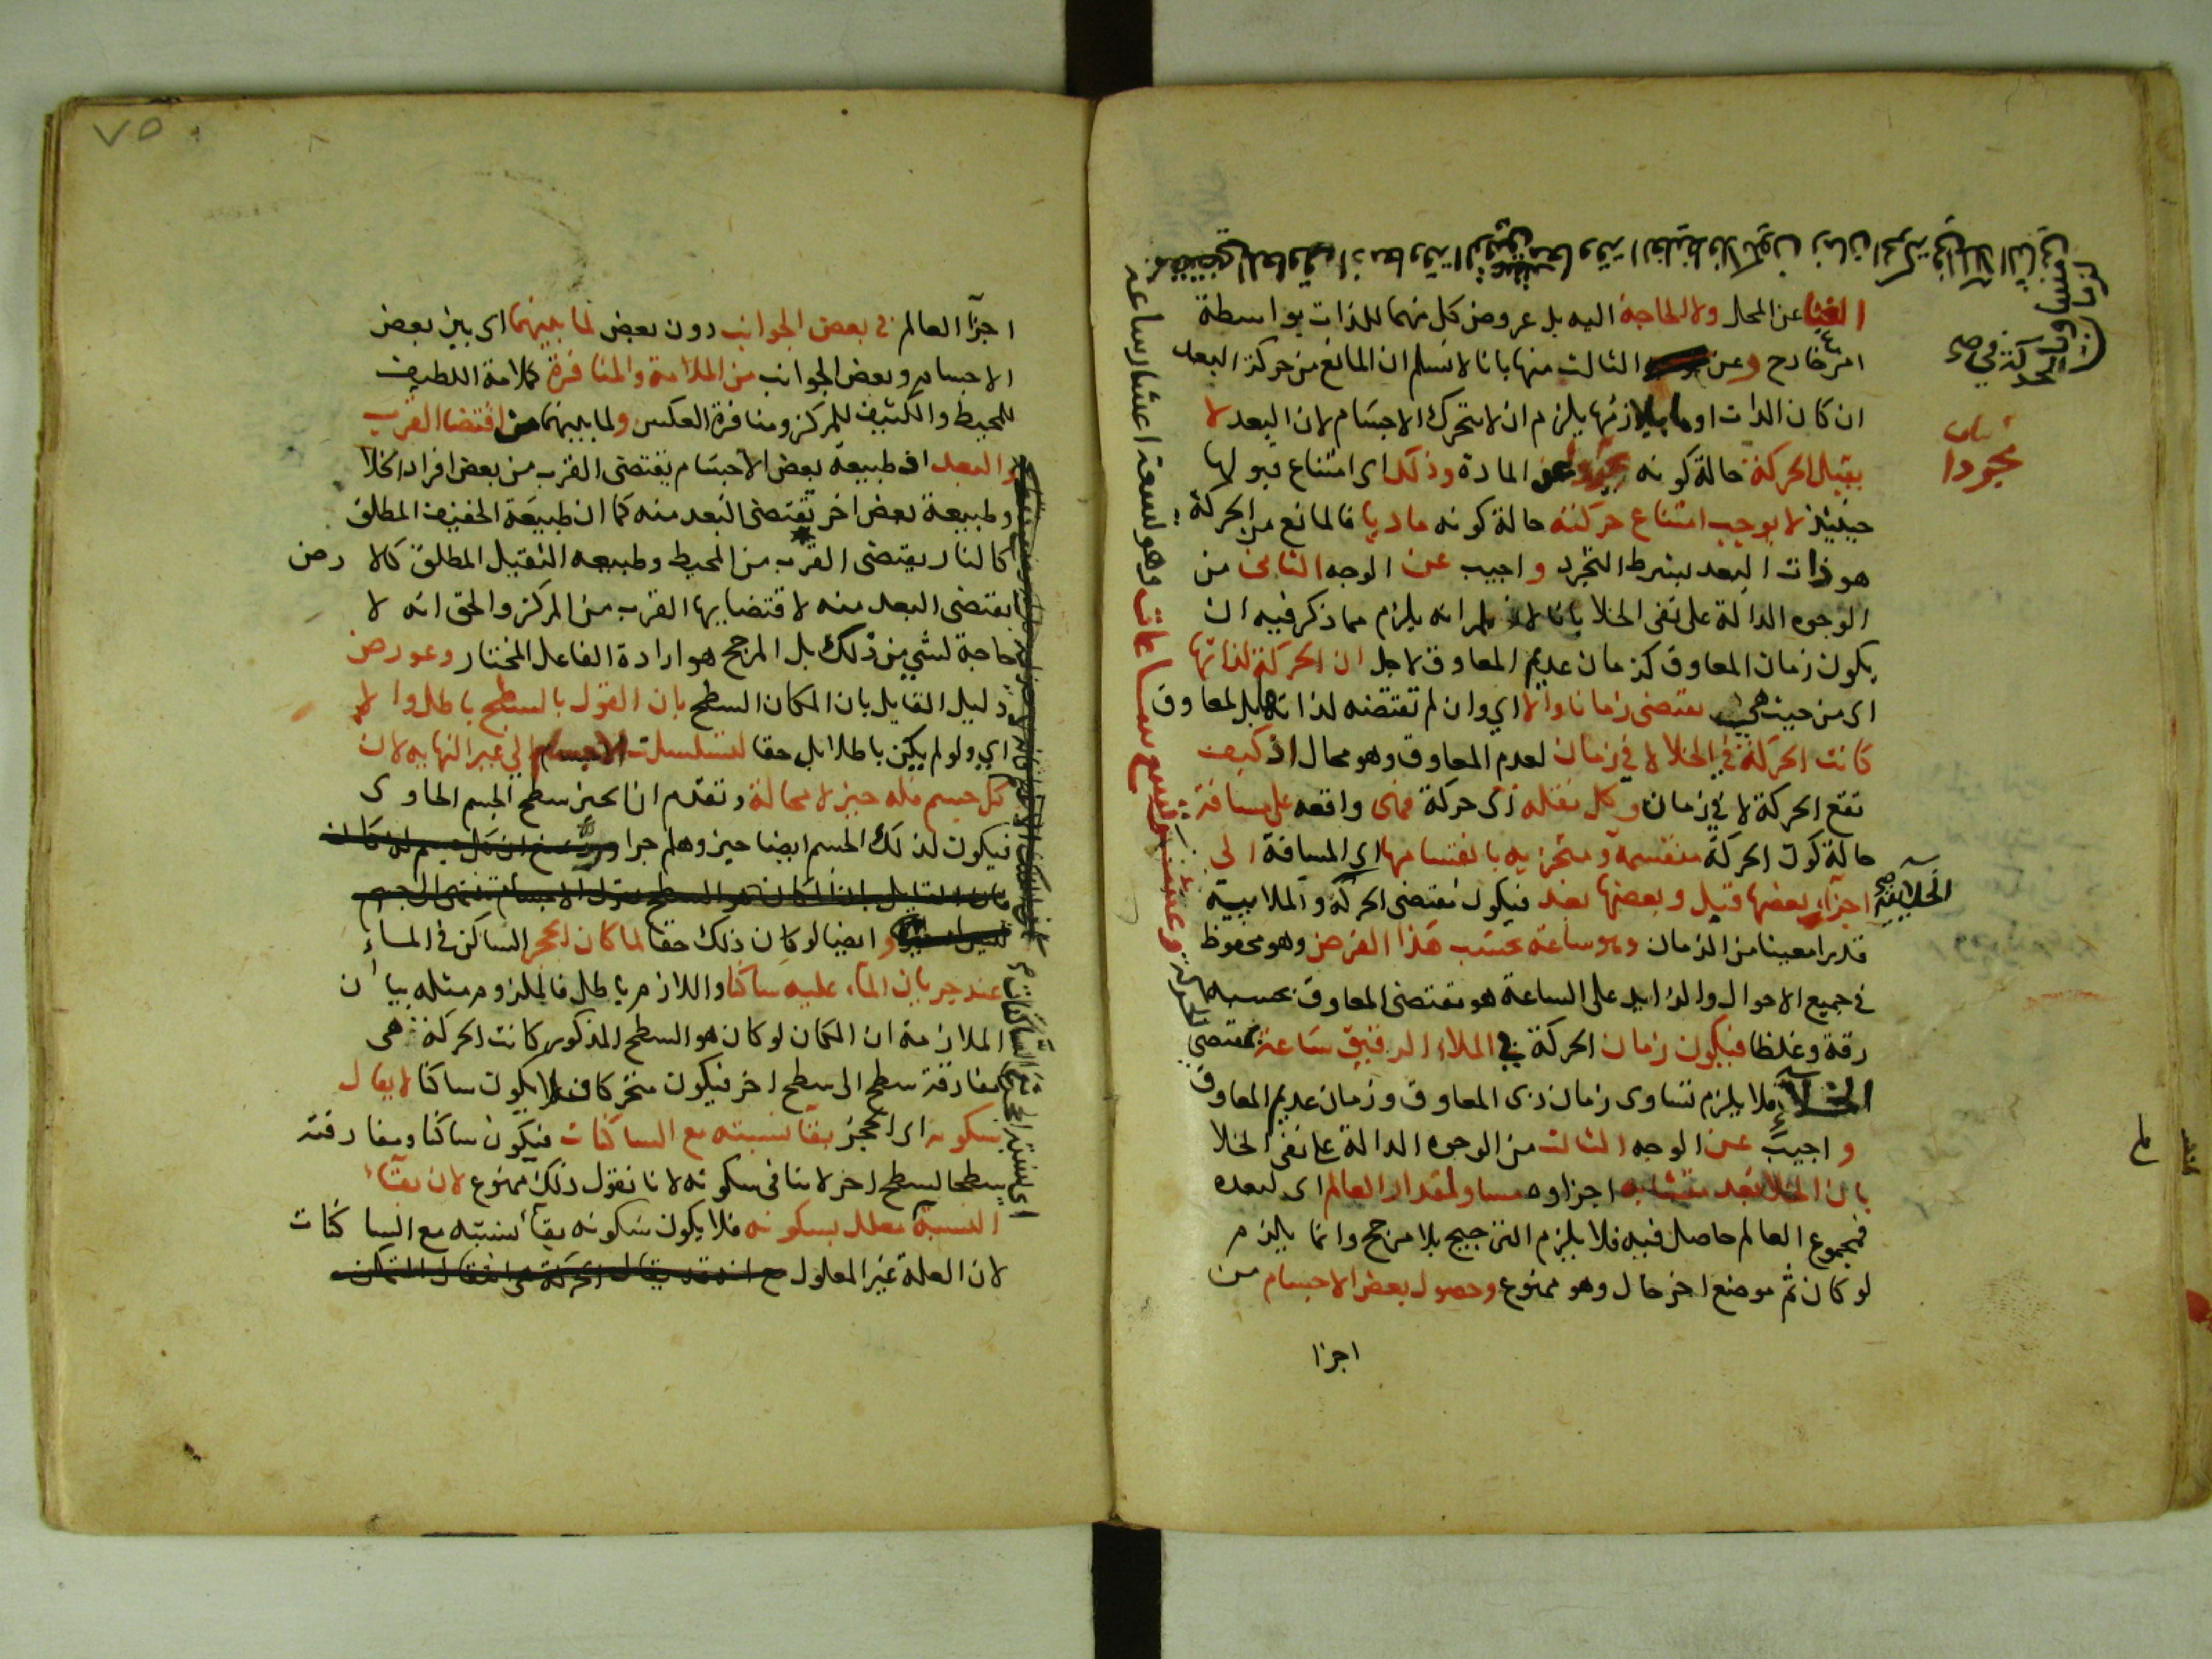 الغنا عن المحل ولا الحاجة اليه بل عروض كل منهما للذات بواسطة
امر خارج وعن الثالث منها بانا لا نسلم ان المانع من حركة البعد
ان كان الذات او ما يلازمها يلزم ان لا يتحرك الاجسام لان البعد لا
يقبل الحركة حالة كونه عن المادة وذلك اى امتناع قبولها
حينيذ لا يوجب امتناع حركته حالة كونه ماديا فالمانع من الحركة
هو ذات البعد بشرط التجرد واجيب عن الوجه الثانى من
الوجوه الدالة على نفى الخلا بانا لا انه يلزم مما ذكر فيه ان
يكون زمان المعاوق كزمان عديم المعاوق لاجل ان الحركة لذاتها
اى من حيث هى تقتضى زمانا والا اي وان لم تقتضه لذاتها بل لمعاوق
كانت الحركة في الخلا لا في زمان لعدم المعاوق وهو محال اذ كيف
تقع الحركة لا في زمان وكل نقلة اى حركة فهى واقعه على مسافة
حالة كون الحركة منقسمة ومتجزيه بانقسامها اى المسافة الى
اجزاء بعضها قبل وبعضها بعد فيكون مقتضى الحركة والملابسة
قدرا معينا من الزمان وهو ساعة بحسب هذا الفرض وهو محفوظ
في جميع الاحوال والزايد على الساعة هو مقتضى المعاوق بحسبه
رقة وغلظا فيكون زمان الحركة في الملاء الرقيق ساعة بمقتضى
فلا يلزم تساوى زمان ذى المعاوق وزمان عديم المعاوق
واجيب عن الوجه الثالث من الوجوه الدالة على نفى الخلا
بان الخلا بعد متشابه اجزاوه مساو لمقدار العالم اى لبعده
فمجموع العالم حاصل فيه فلا يلزم الترجيح بلا مرجح وانما يلزم
لو كان ثم موضع اخر خال وهو ممنوع وحصول بعض الاجسام من
اجزا
وهو تسعة اعشار ساعة
٧٥
اجزآ العالم في بعض الجوانب دون بعض لما بينهما اى بين بعض
الاجسام وبعض الجوانب من الملامة والمنافرة كملامة اللطيف
للمحيط والكثيف للمركز ومنافرة العكس ولما بينهما من اقتضا القرب
والبعد اذ طبيعة بعض الاجسام يقتضى القرب من بعض افراد الخلا
وطبيعة بعض اخر تقتضى البعد منه كما ان طبيعة الخفيف المطلق
كالنار يقتضى القرب من المحيط وطبيعه الثقيل المطلق كالارض
يقتضى البعد منه لاقتضايها القرب من المركز والحق انه لا
حاجة لشي من ذلك بل المرجح هو ارادة الفاعل المختار وعورض
دليل القايل بان المكان السطح بان القول بالسطح باطل والا
اي ولو لم يكن باطلا بل حقا لتسلسلت الاجسام الى غير النهايه لان
كل جسم فله حيز لا محالة وتقدم ان الحيز سطح الجسم الحاوى
فيكون لذلك الجسم ايضا حيز وهلم جرا
وايضا لو كان ذلك حقا لما كان الحجر الساكن في الماء
عند جريان الماء عليه ساكنا واللازم باطل فالملزوم مثله بيان
الملازمة ان المكان لو كان هو السطح المذكور كانت الحركة هى
مفارقة سطح الى سطح اخر فيكون متحركا فلا يكون ساكنا لا يقال
سكونه اى الحجر بقآ نسبته مع الساكنات فيكون ساكنا ومفارقته
سطحا لسطح اخر لا ينافى سكونه لانا نقول ذلك ممنوع لان بقآء
النسبة معلل بسكونه فلا يكون سكونه بقآ نسبته مع الساكنات
لان العلة غير المعلول